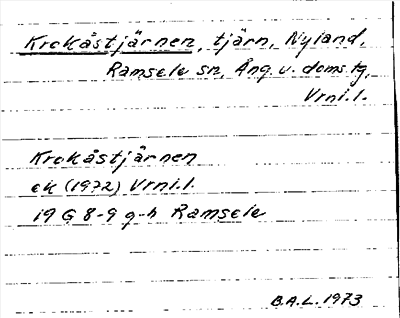 Krokåstjärnen, tjärn, Nyland,
Ramsele sn, Ång. v. doms.tg,
Vrni.l.
Krokåstjärnen
ek (1972) Vrni.l.
19 G 8-9 g-h Ramsele
B.A.L. 1973